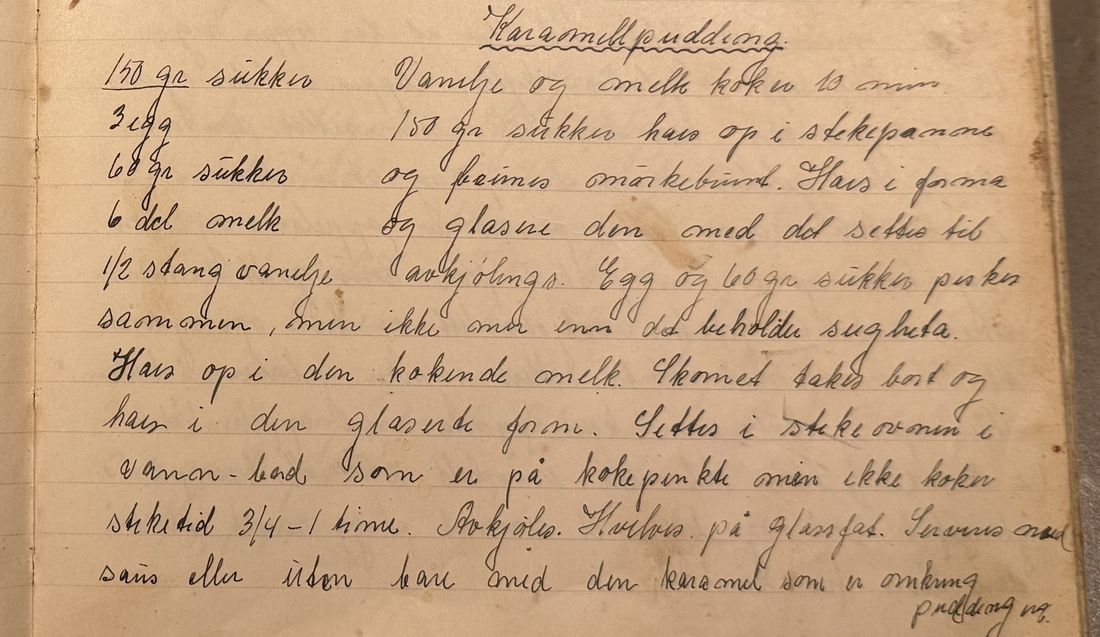 Karamellpudding.
150 gr sukker Vanelje og melk koker 10 min.
3 egg 150 gr sukker haes op i stekepanne
60 gr sukker og brunes mørkebrunt. Haes i forma
6 del melk og glasere den med det settes til
1/2 stang vanelje avkjølings. Egg og 60 gr sukker pisker
sammen, men ikke mer enn de beholder seigheta.
Haes op i den kokende melk. Skomet takes bort og
haes i den glaserte form. Settes i stekeovnen i
vann-bad som er på kokepunkte men ikke koker
steketid 3/4 – 1 time. Avkjøles. Hvelves på glassfat. Serveres med
saus eller uten bare med den karamel som er omkring
puddingen.